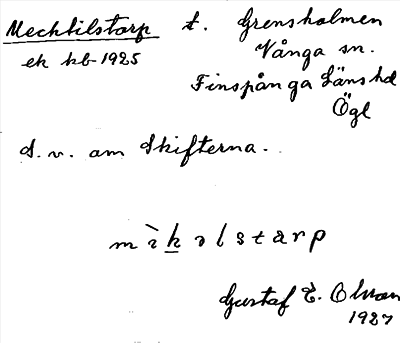 Mechtilstorp t. Grensholmen
ek kb 1925 Vånga sn.
Finspånga Läns hd
Ögl
S. v. om Skifterna.
mìkəlstarp
Gustaf E. Olson
1927